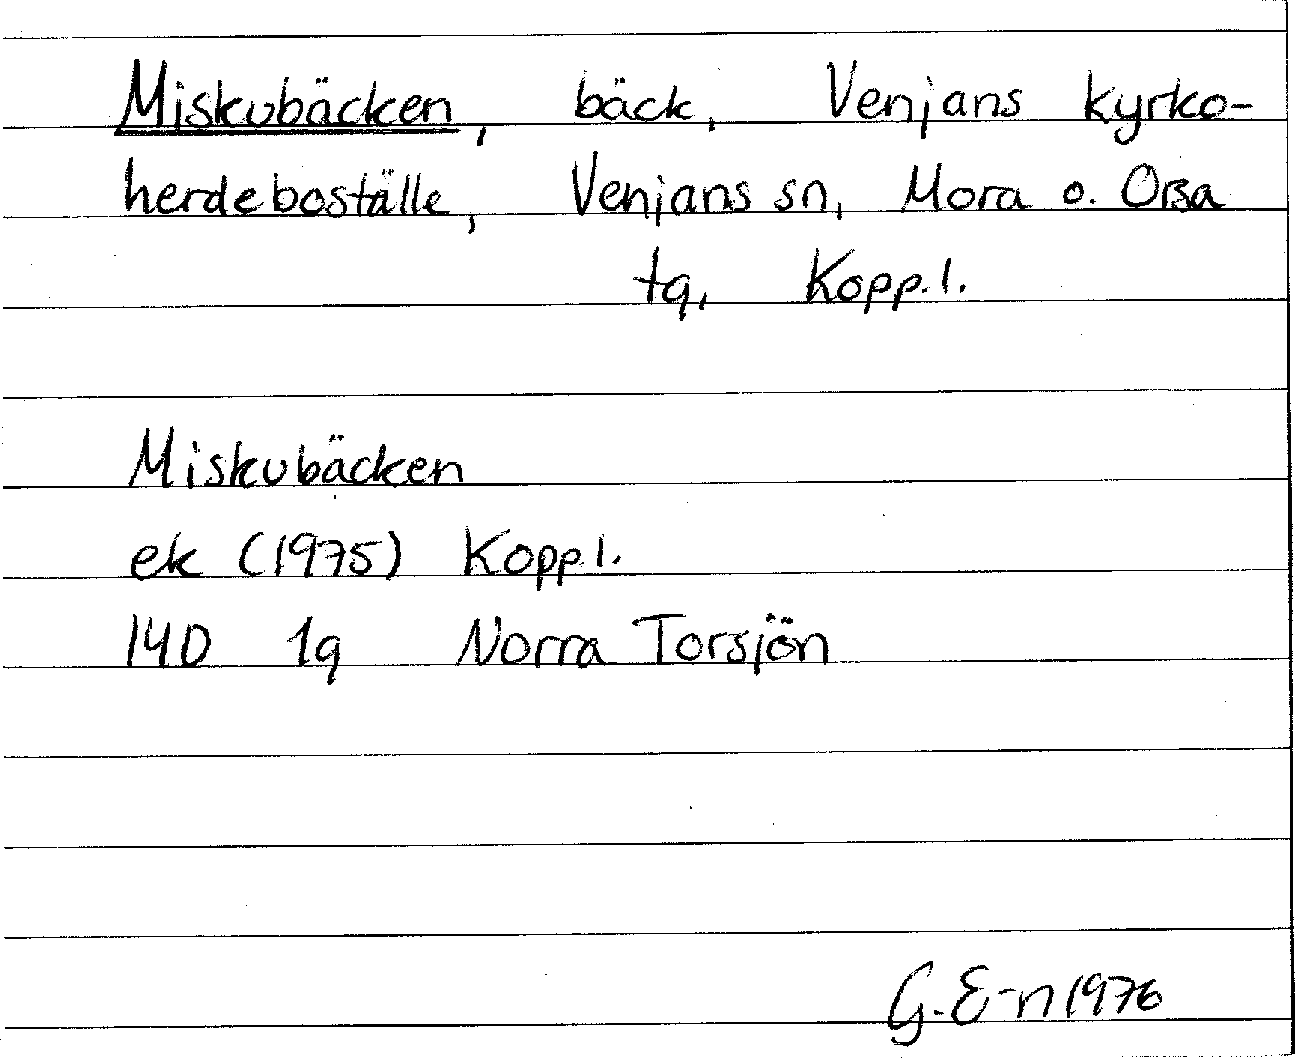 Miskubäcken, bäck, Venjans kyrko-
herdeboställe, Venjans sn, Mora o. Orsa
tg, Kopp.l.
Miskubäcken
ek (1975) Kopp l.
14D 1g Norra Torsjön
G.E-n 1976